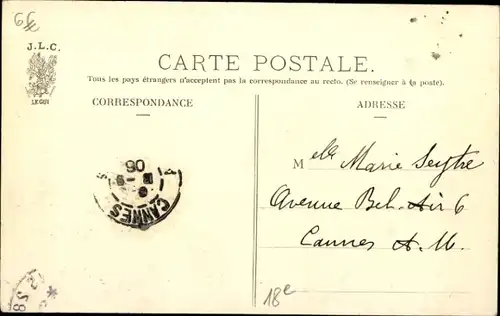 6€
J. L. C.
LE GUI
CARTE POSTALE.
Tous les pays étrangers n'acceptent pas la correspondance au recto. (Se renseigner à la poste).
CORRESPONDANCE
ADRESSE
CANNES
06
Melle Marie Seytre
Avenue Bel-Air 6
Cannes A. M.
18e